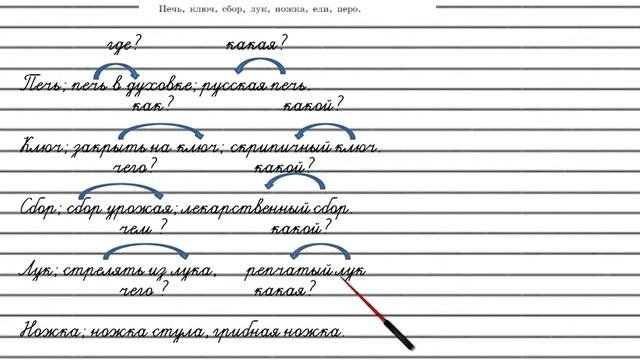 Печь, ключ, сбор, лук, ножка, ели, перо.
где? какая?
Печь; печь в духовке; русская печь.
как? какой?
Ключ; закрыть на ключ; скрипичный ключ.
чего? какой?
Сбор; сбор урожая; лекарственный сбор.
чем? какой?
Лук; стрелять из лука, репчатый лук
чего? какая?
Ножка; ножка стула, грибная ножка.